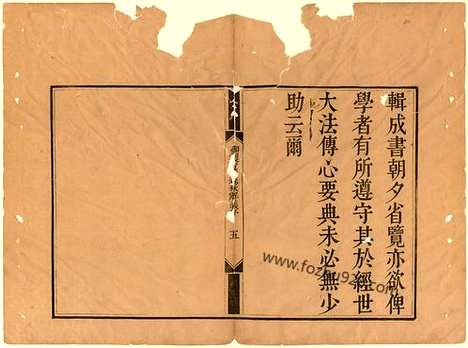 輯成書朝夕省覽亦欲俾
學者有所遵守其於經世
大法傳心要典未必無少
助云爾
五